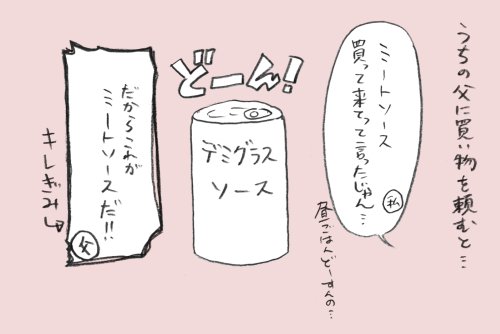 うちの父に買い物を頼むと…
ミートソース
買って来てって言ったじゃん…
私
昼ごはんどーすんの…
どーん!
デミグラス
ソース
だからこれが
ミートソースだ!!
父
キレぎみ